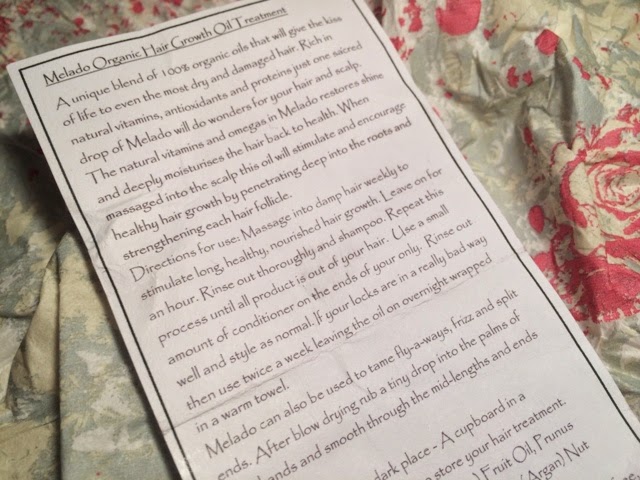 Melado Organic Hair Growth Oil Treatment
A unique blend of 100% organic oils that will give the kiss
of life to even the most dry and damaged hair. Rich in
natural vitamins, antioxidants and proteins just one sacred
drop of Melado will do wonders for your hair and scalp.
The natural vitamins and omegas in Melado restores shine
and deeply moisturises the hair back to health. When
massaged into the scalp this oil will stimulate and encourage
healthy hair growth by penetrating deep into the roots and
strengthening each hair follicle.
Directions for use: Massage into damp hair weekly to
stimulate long, healthy, nourished hair growth. Leave on for
an hour. Rinse out thoroughly and shampoo. Repeat this
process until all product is out of your hair. Use a small
amount of conditioner on the ends of your only. Rinse out
well and style as normal. If your locks are in a really bad way
then use twice a week leaving the oil on overnight wrapped
in a warm towel.
Melado can also be used to tame fly-a-ways, frizz and split
ends. After blow drying rub a tiny drop into the palms of
hands and smooth through the mid-lengths and ends
dark place - A cupboard in a
store your hair treatment.
) Fruit Oil, Prunus
(Argan) Nut